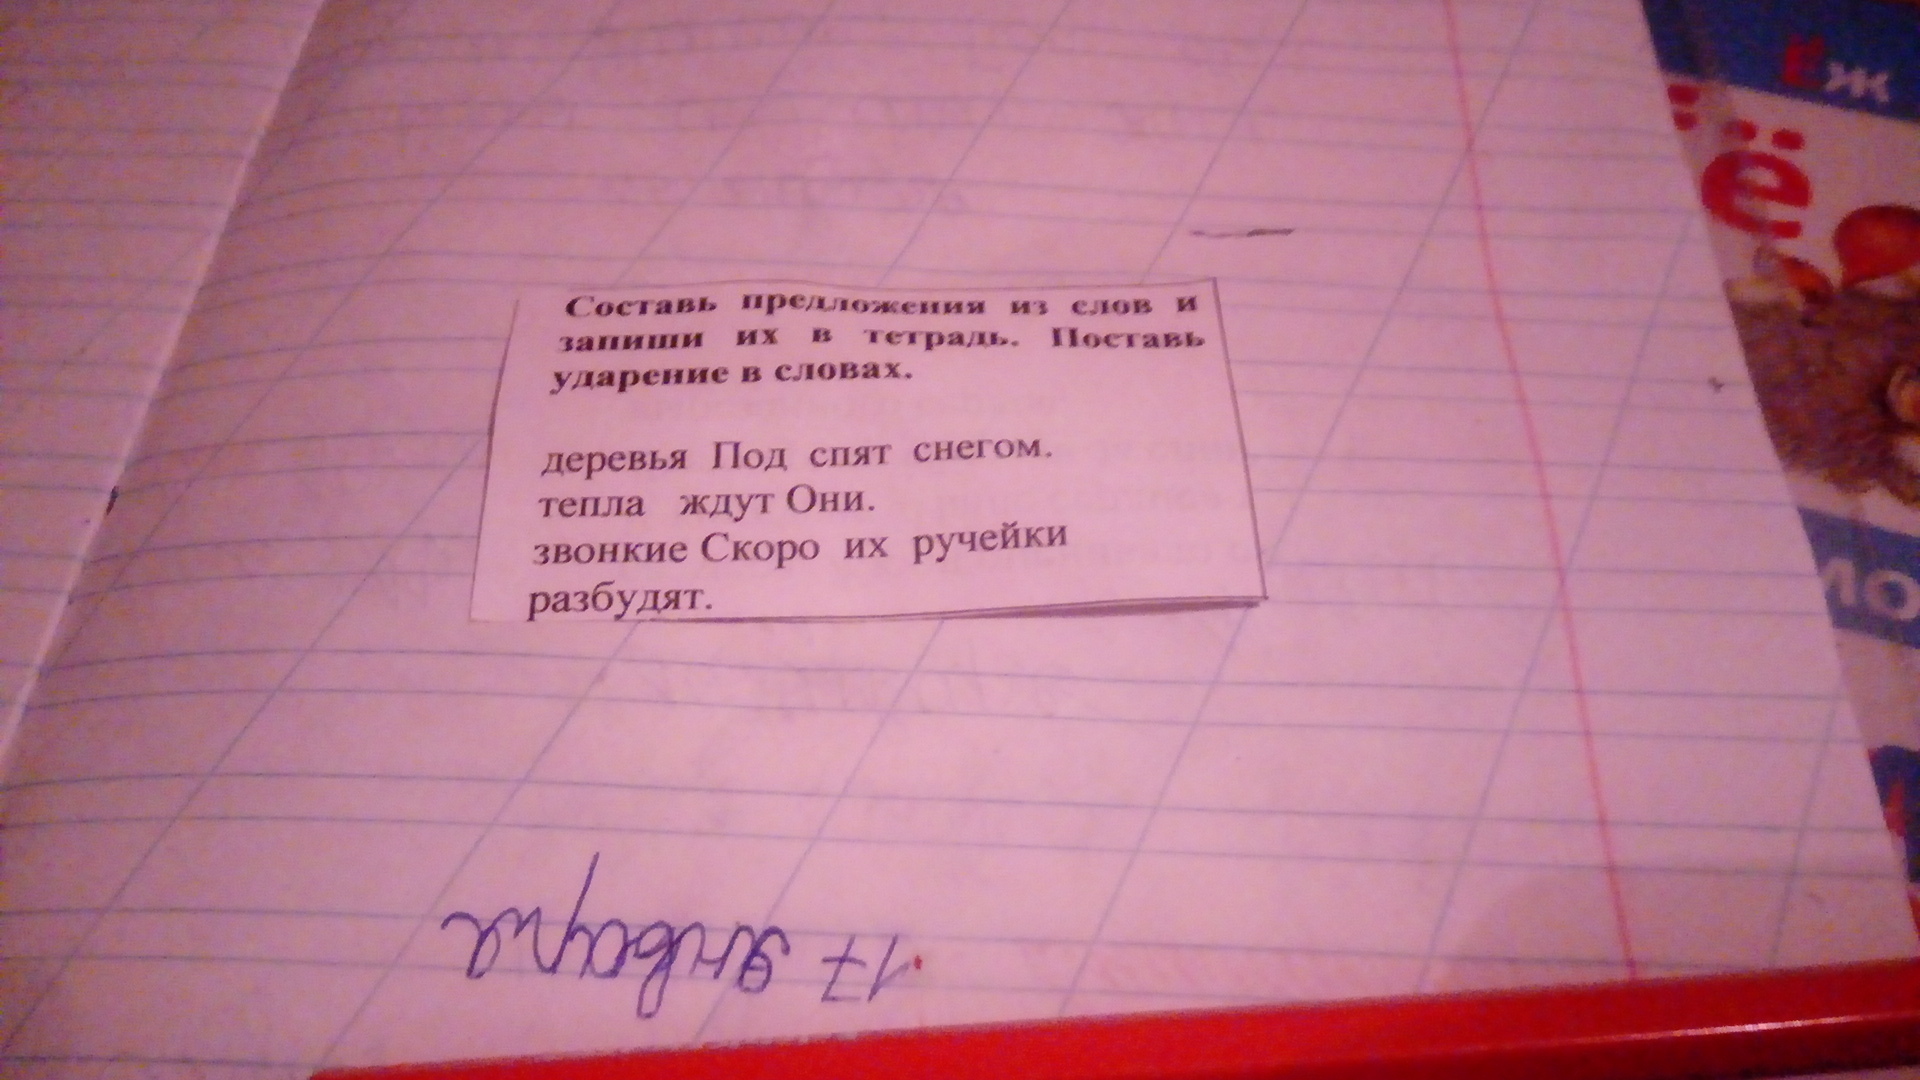 Составь предложения из слов и
запиши их в тетрадь. Поставь
ударение в словах.
деревья Под спят снегом.
тепла ждут Они.
звонкие Скоро их ручейки
разбудят.
17 января
Ёж
Ё